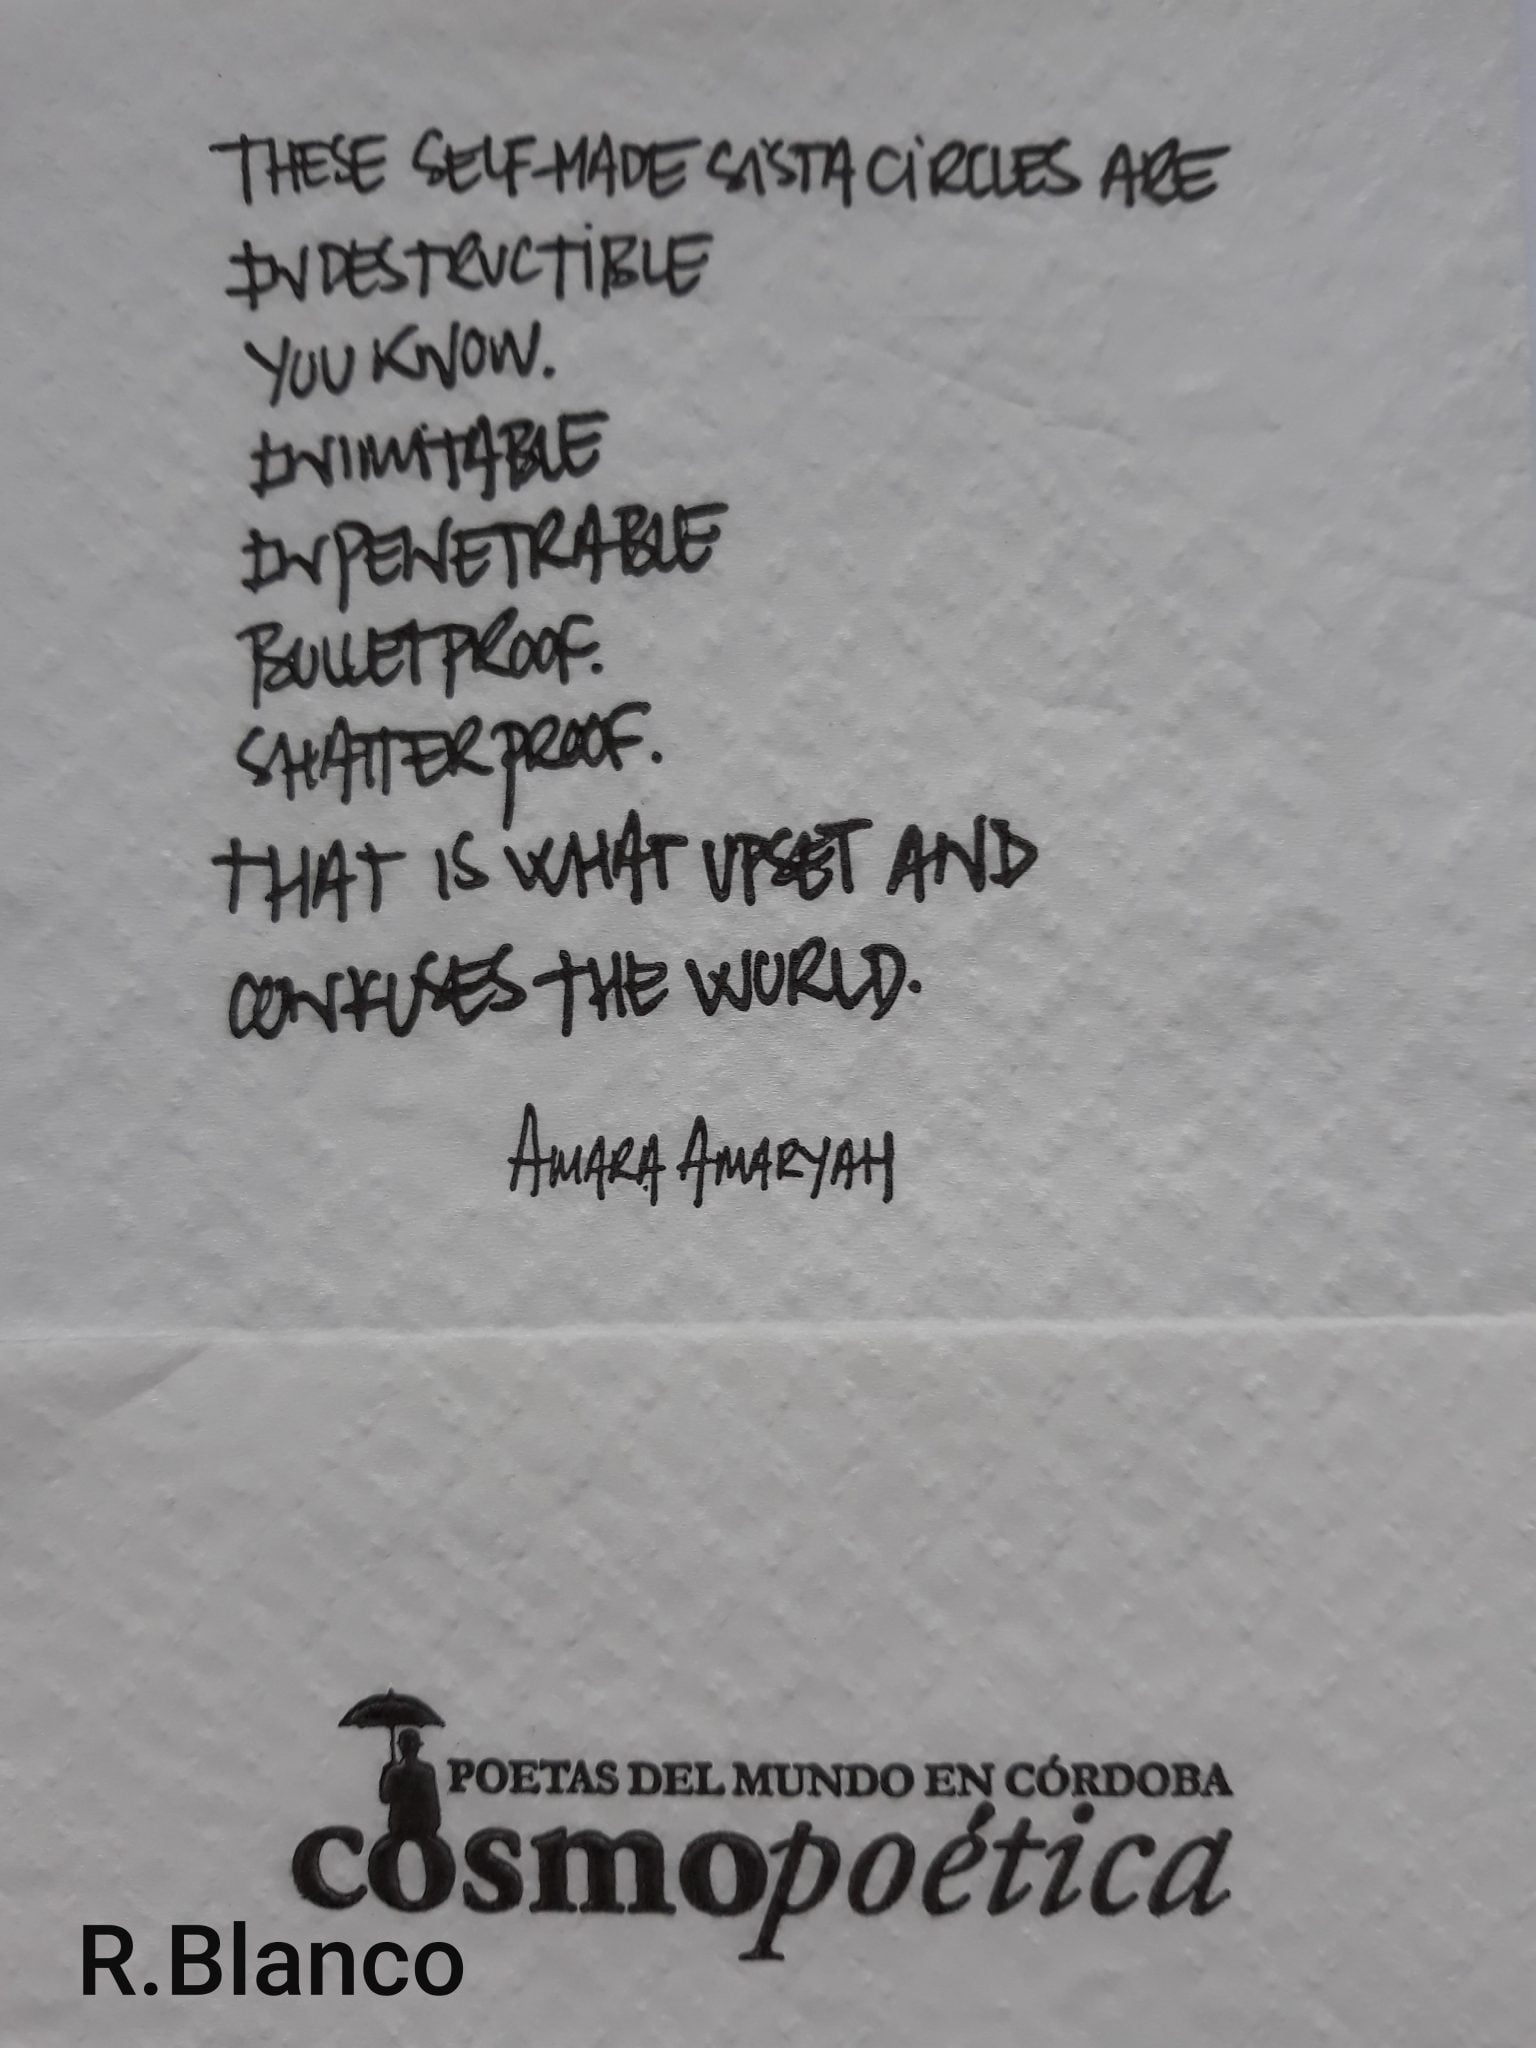 THESE SELF-MADE SISTA CIRCLES ARE
INDESTRUCTIBLE
YOU KNOW.
INIMITABLE
INPENETRABLE
BULLETPROOF.
SHATTERPROOF.
THAT IS WHAT UPSET AND
CONFUSES THE WORLD.
AMARA AMARYAH
POETAS DEL MUNDO EN CÓRDOBA
cosmopoética
R.Blanco